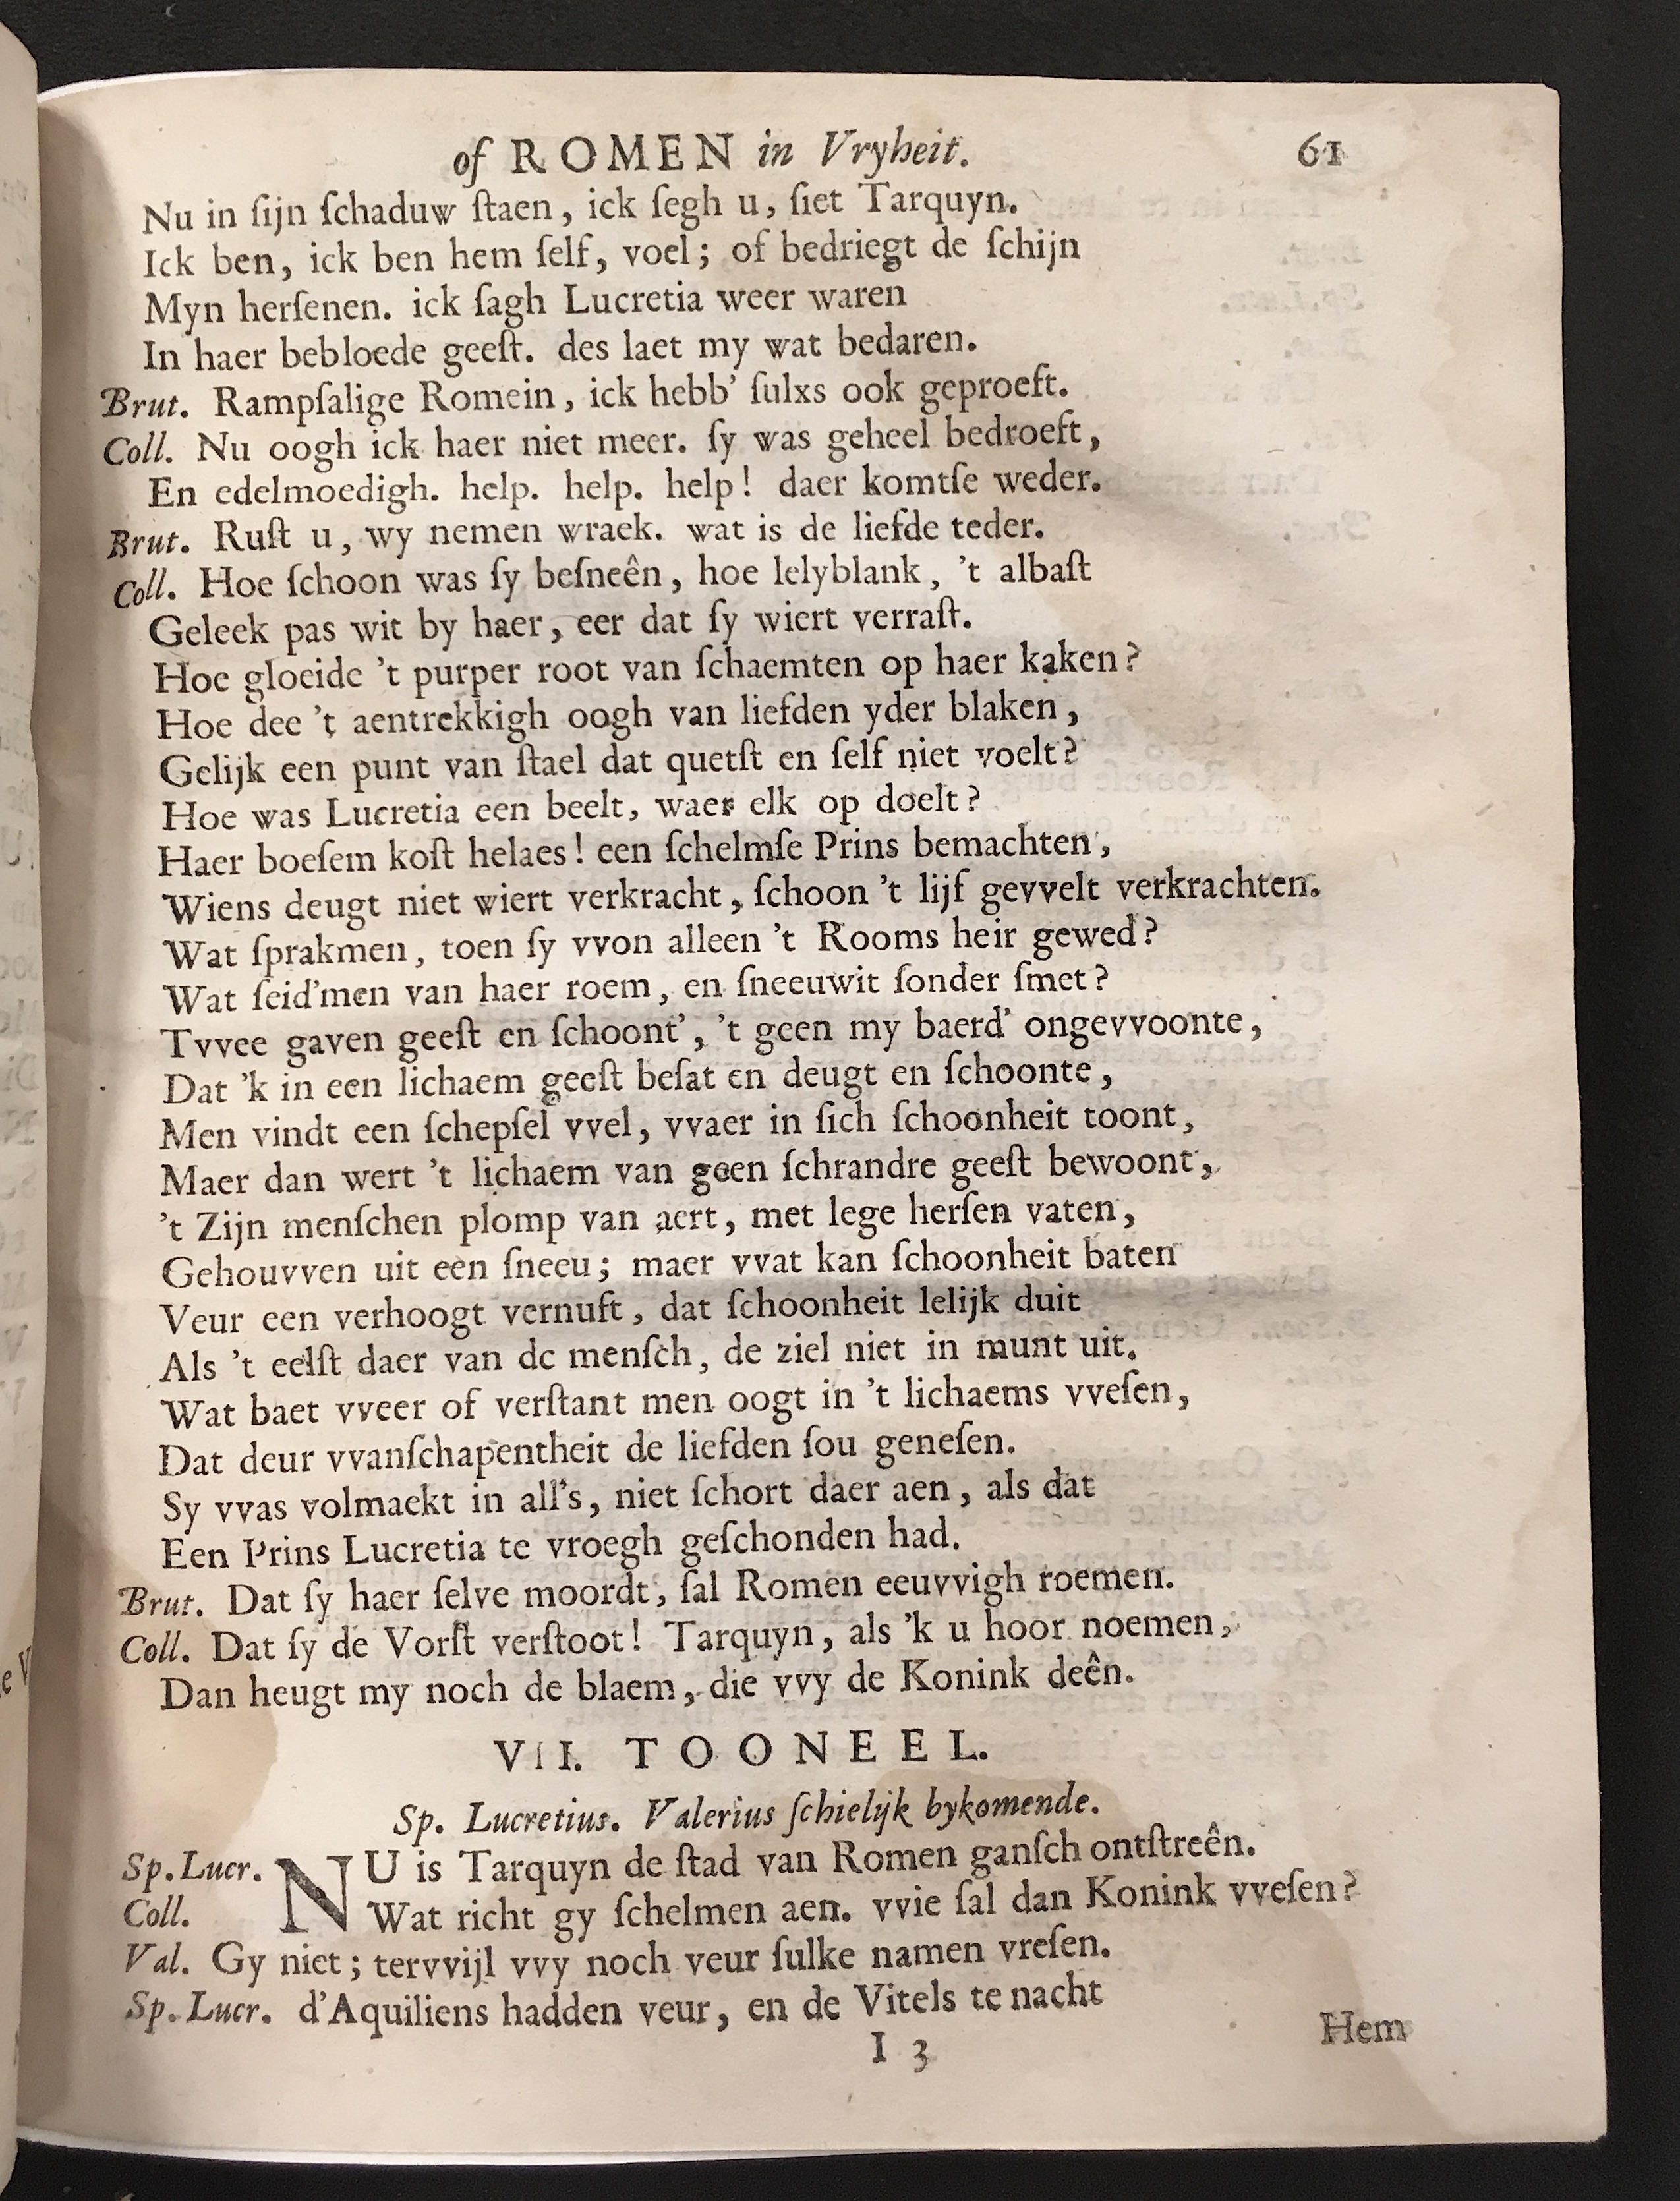 of ROMEN in Vryheit. 61
Nu in ſijn ſchaduw ſtaen, ick ſegh u, ſiet Tarquyn.
Ick ben, ick ben hem ſelf, voel; of bedriegt de ſchijn
Myn herſenen. ick ſagh Lucretia weer waren
In haer bebloede geeſt. des laet my wat bedaren.
Brut. Rampſalige Romein, ick hebb' ſulxs ook geproeft.
Coll. Nu oogh ick haer niet meer. ſy was geheel bedroeft,
En edelmoedigh. help. help. help! daer komtſe weder.
Brut. Ruſt u, wy nemen wraek. wat is de liefde teder.
Coll. Hoe ſchoon was ſy beſneên, hoe lelyblank, 't albaſt
Geleek pas wit by haer, eer dat ſy wiert verraſt.
Hoe gloeide 't purper root van ſchaemten op haer kaken?
Hoe dee 't aentrekkigh oogh van liefden yder blaken,
Gelijk een punt van ſtael dat quetſt en ſelf niet voelt?
Hoe was Lucretia een beelt, waer elk op doelt?
Haer boeſem koſt helaes! een ſchelmſe Prins bemachten,
Wiens deugt niet wiert verkracht, ſchoon 't lijf gevvelt verkrachten.
Wat ſprakmen, toen ſy vvon alleen 't Rooms heir gewed?
Wat ſeid'men van haer roem, en ſneeuwit ſonder ſmet?
Tvvee gaven geeſt en ſchoont', 't geen my baerd' ongevvoonte,
Dat 'k in een lichaem geeſt beſat en deugt en ſchoonte,
Men vindt een ſchepſel vvel, vvaer in ſich ſchoonheit toont,
Maer dan wert 't lichaem van geen ſchrandre geeſt bewoont,
't Zijn menſchen plomp van aert, met lege herſen vaten,
Gehouvven uit een ſneeu; maer vvat kan ſchoonheit baten
Veur een verhoogt vernuft, dat ſchoonheit lelijk duit
Als 't eelſt daer van de menſch, de ziel niet in munt uit.
Wat baet vveer of verſtant men oogt in 't lichaems vveſen,
Dat deur vvanſchapentheit de liefden ſou geneſen.
Sy vvas volmaekt in all's, niet ſchort daer aen, als dat
Een Prins Lucretia te vroegh geſchonden had.
Brut. Dat ſy haer ſelve moordt, ſal Romen eeuvvigh roemen.
Coll. Dat ſy de Vorſt verſtoot! Tarquyn, als 'k u hoor noemen,
Dan heugt my noch de blaem, die vvy de Konink deên.
VII. TOONEEL.
Sp. Lucretius. Valerius ſchielijk bykomende.
Sp. Lucr. NU is Tarquyn de ſtad van Romen ganſch ontſtreên.
Coll. Wat richt gy ſchelmen aen. vvie ſal dan Konink vveſen?
Val. Gy niet; tervvijl vvy noch veur ſulke namen vreſen.
Sp. Lucr. d'Aquiliens hadden veur, en de Vitels te nacht
I 3 Hem